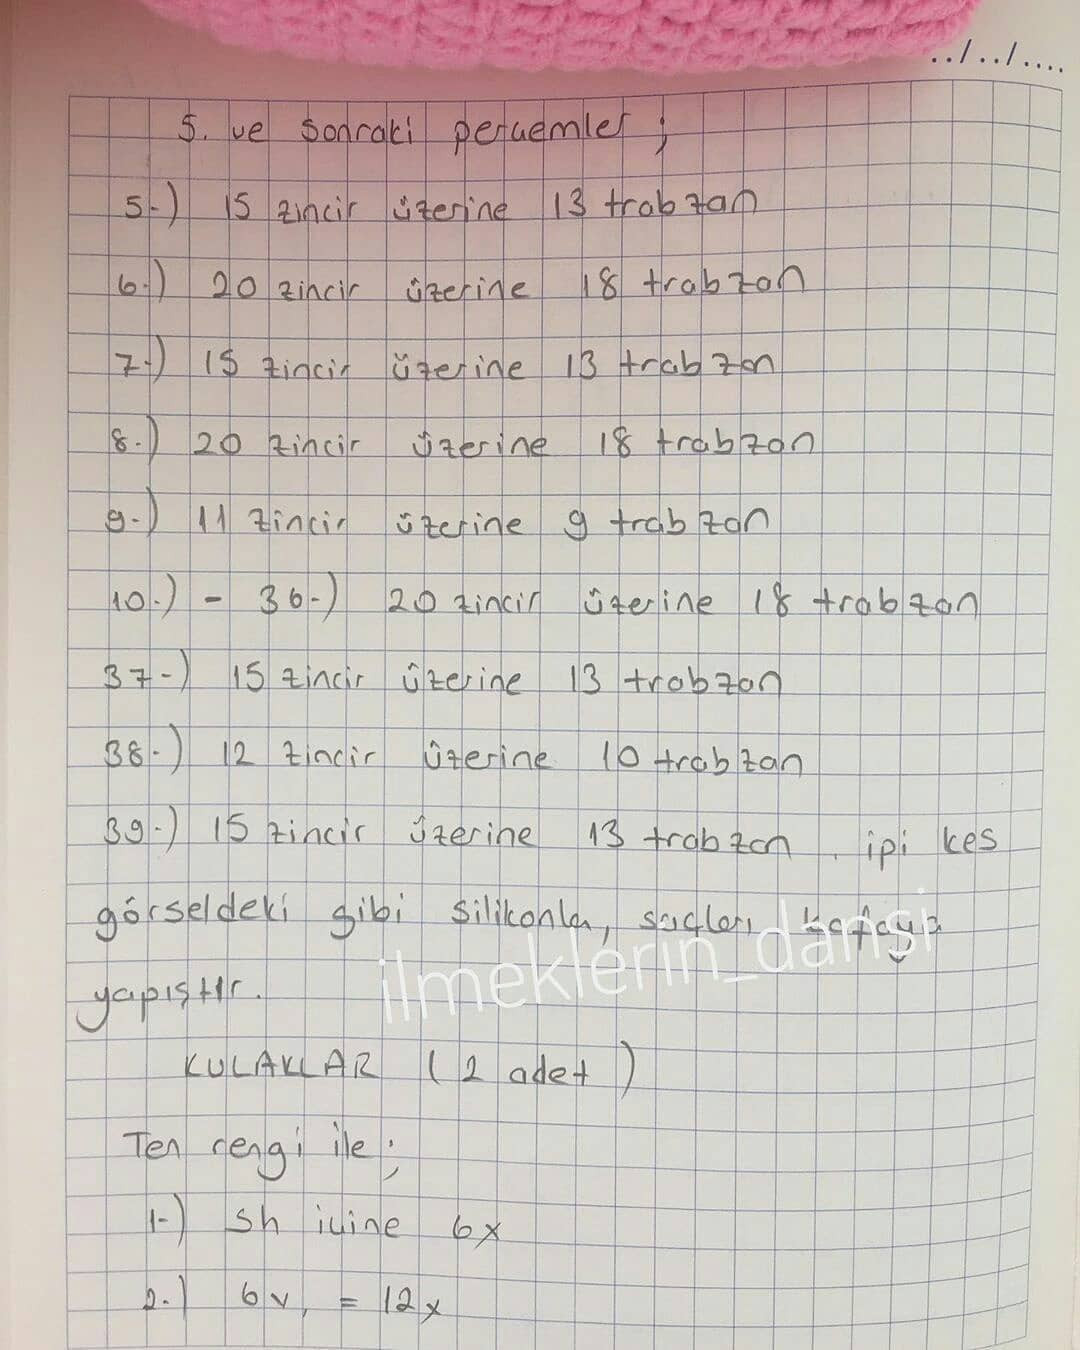 ../../....
5. ve sonraki perçemler ;
5-) 15 zincir üzerine 13 trabzan
6.) 20 zincir üzerine 18 trabzan
7.) 15 zincir üzerine 13 trabzan
8.) 20 zincir üzerine 18 trabzan
9.) 11 zincir üzerine 9 trabzan
10.) - 36-) 20 zincir üzerine 18 trabzan
37-) 15 zincir üzerine 13 trabzan
38-) 12 zincir üzerine 10 trabzan
39-) 15 zincir üzerine 13 trabzan . ipi kes
görseldeki gibi silikonla, saçları kafaya
ilmeklerin_dansi
yapıştır.
KULAKLAR ( 2 adet )
Ten rengi ile ;
1-) sh içine 6x
2-) 6v, = 12x